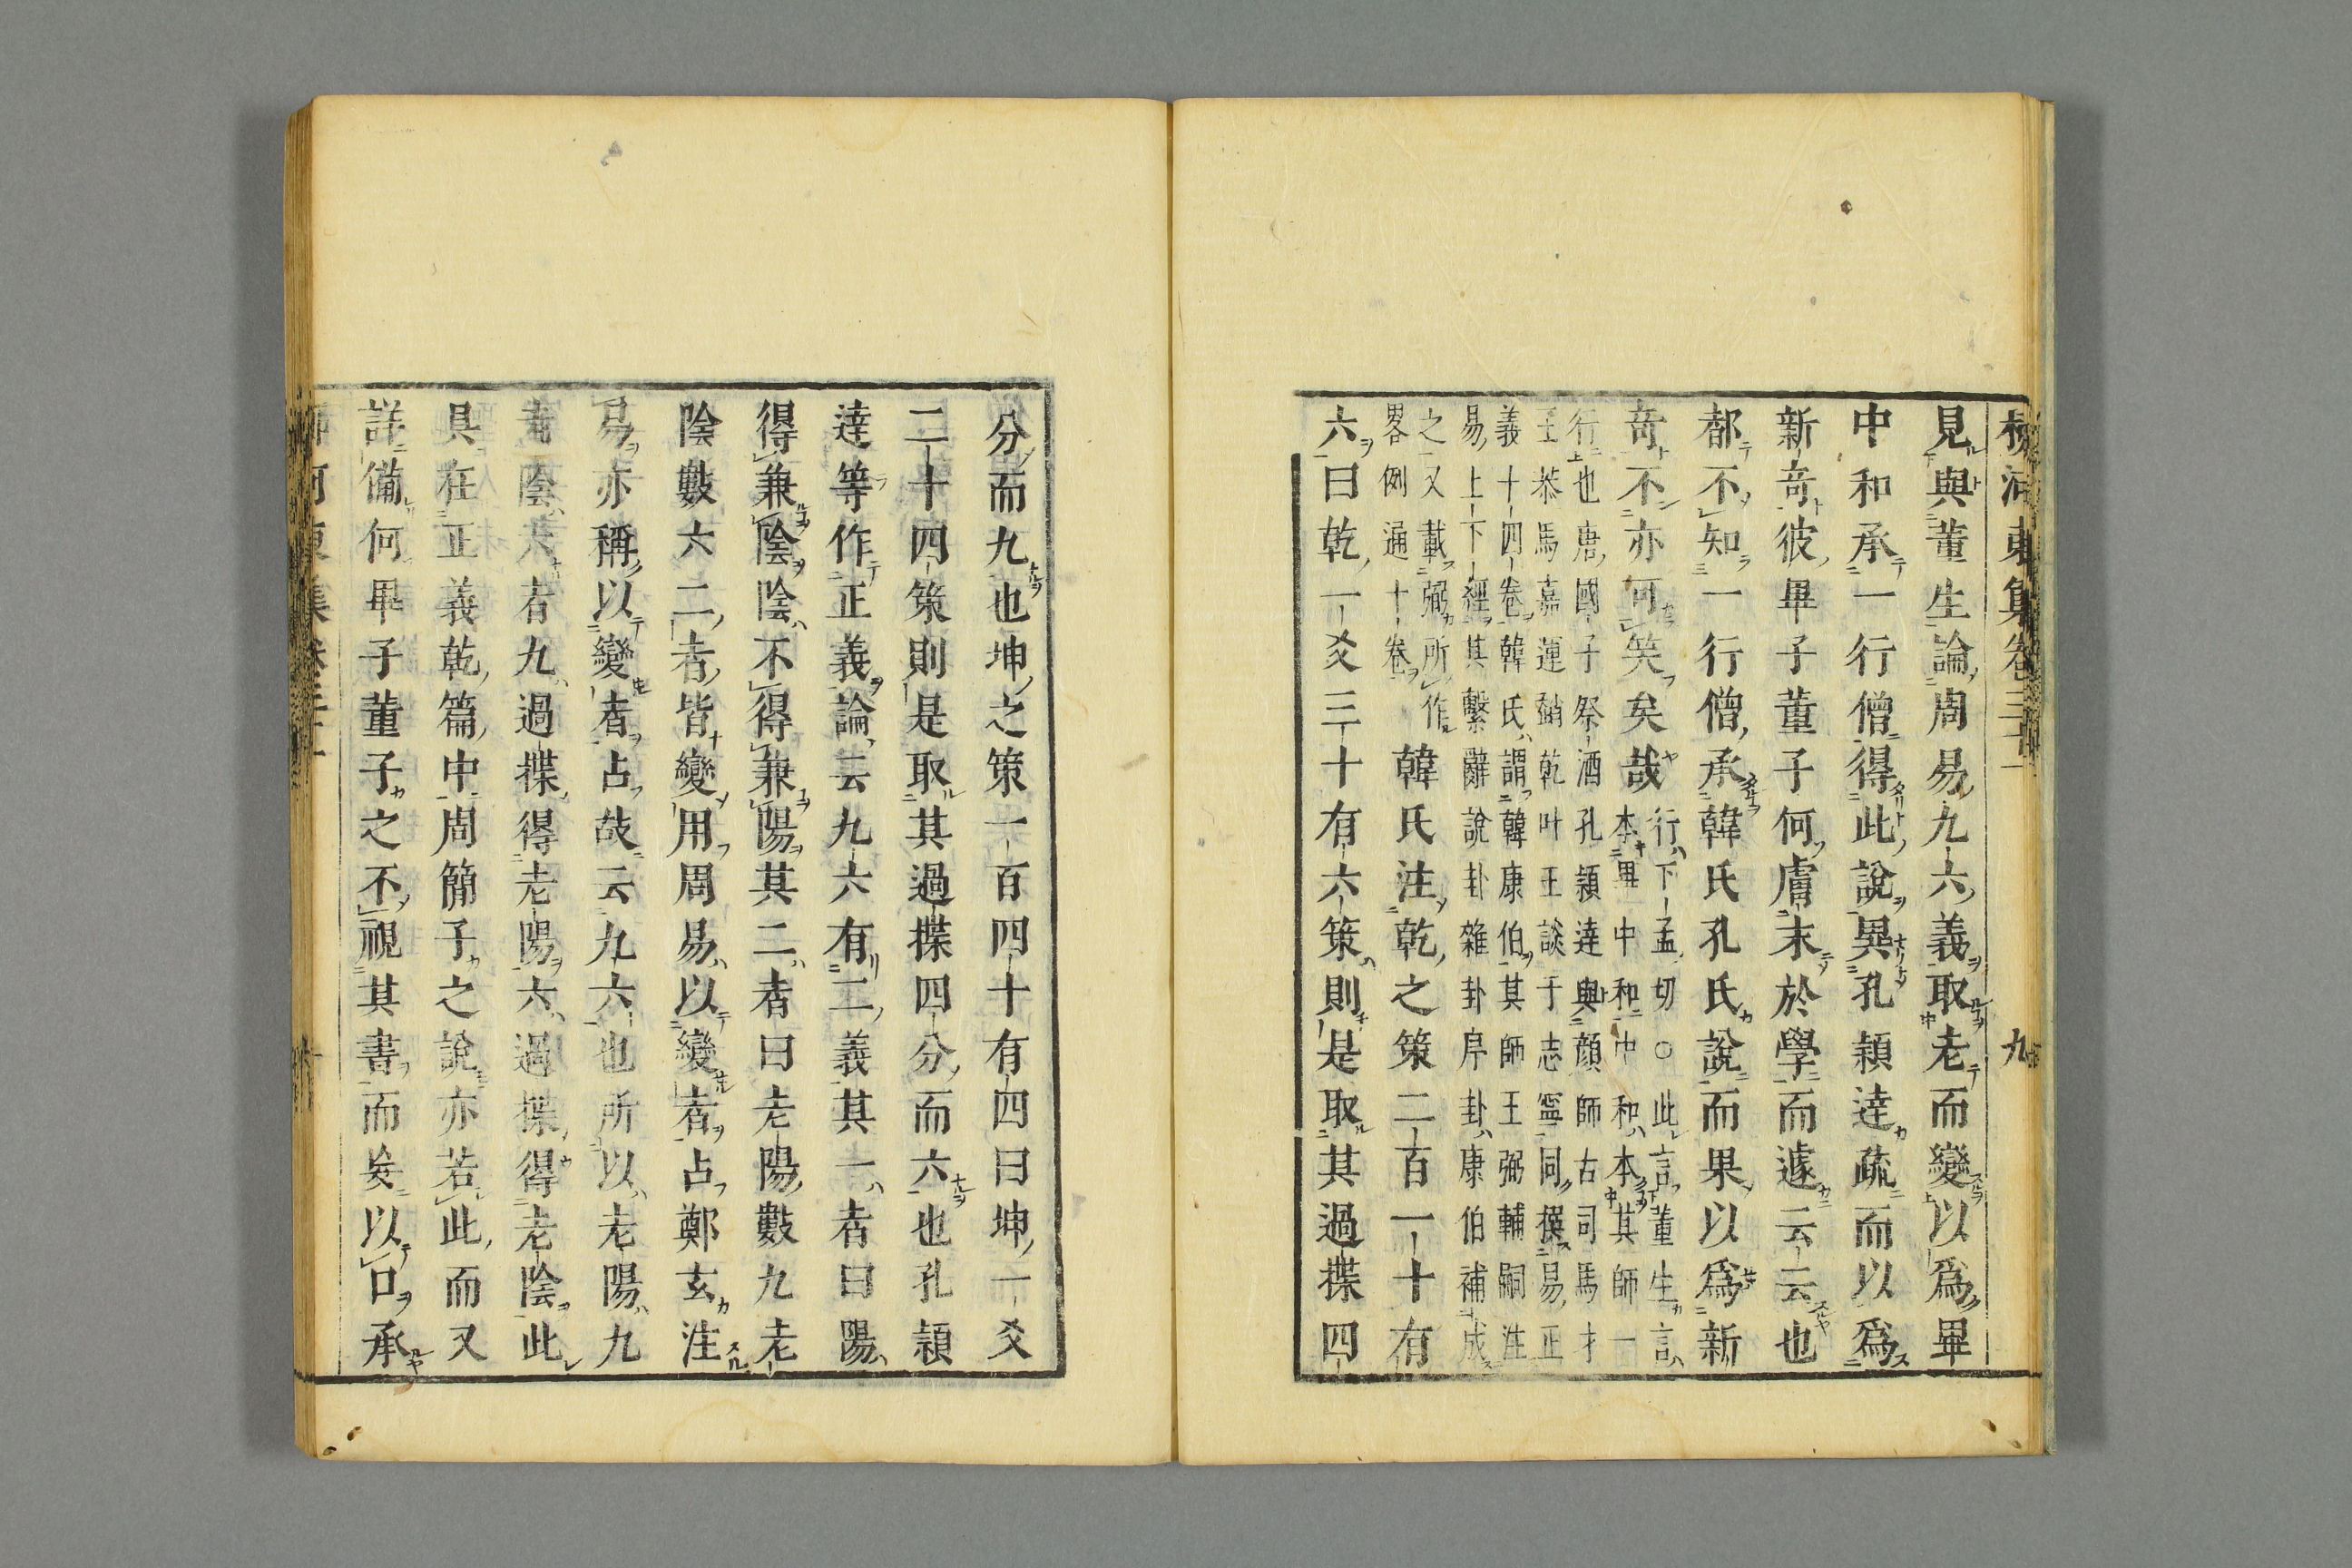 柳河東集卷三十一　九
見與董生論周易九六義取老而變以爲畢
中和承一行僧得此說異孔穎達疏而以爲
新奇彼畢子董子何膚末於學而遽云云也
都不知一行僧承韓氏孔氏說而果以爲新
奇不亦可笑矣哉
行下孟切○此言董生言
本畢中和中和本其師一
行也唐國子祭酒孔穎達與顔師古司馬才
王恭馬嘉運趙乾叶王談于志寧同撰易正
義十四卷韓氏謂韓康伯其師王弼輔嗣注
易上下經其繫辭說卦雜卦序卦康伯補成
之又載弼所作
畧例通十卷
韓氏注乾之策二百一十有
六曰乾一爻三十有六策則是取其過揲四
分而九也坤之策一百四十有四曰坤一爻
二十四策則是取其過揲四分而六也孔穎
達等作正義論云九六有二義其一者曰陽
得兼陰陰不得兼陽其二者曰老陽數九老
陰數六二者皆變用周易以變者占鄭玄注
易亦稱以變者占故云九六也所以老陽九
老陰六者九過揲得老陽六過揲得老陰此
具在正義乾篇中周簡子之說亦若此而又
詳備何畢子董子之不視其書而妄以口承